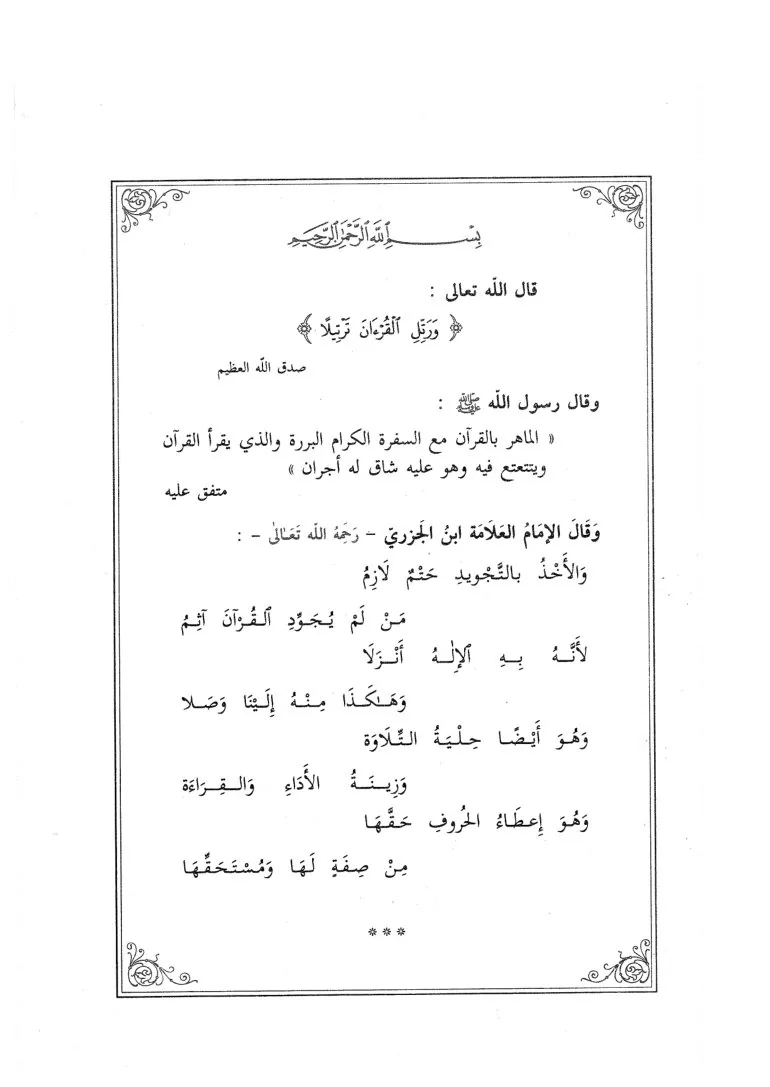 بِسْمِ ٱللَّهِ ٱلرَّحْمَٰنِ ٱلرَّحِيمِ
قال اللّه تعالى :
﴿ وَرَتِّلِ ٱلْقُرْءَانَ تَرْتِيلًا ﴾
صدق اللّه العظيم
وقال رسول اللّه ﷺ :
« الماهر بالقرآن مع السفرة الكرام البررة والذي يقرأ القرآن
ويتتعتع فيه وهو عليه شاق له أجران »
متفق عليه
وَقَالَ الإِمَامُ العَلَامَة ابنُ الجَزريّ – رَحِمَهُ اللّه تَعَالىٰ – :
وَالأَخْذُ بالتَّجْويدِ حَتْمٌ لَازِمُ
مَنْ لَمْ يُجَوِّدِ ٱلقُرْآنَ آثِمُ
لأَنَّهُ بِهِ ٱلإِلٰهُ أَنْزَلَا
وَهَٰكَذَا مِنْهُ إِلَيْنَا وَصَلا
وَهُوَ أَيْضًا حِلْيَةُ التِّلَاوَة
وَزِينَةُ الأَدَاءِ وَالقِرَاءَة
وَهُوَ إِعطَاءُ الحُروفِ حَقَّهَا
مِنْ صِفَةٍ لَهَا وَمُسْتَحَقِّهَا
***